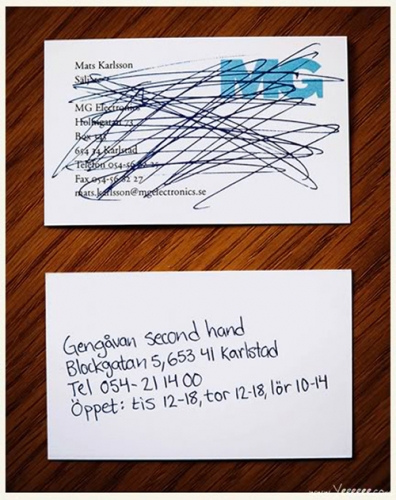 Mats Karlsson
MG
MG Electronics
Holmgatan 73
Box
654 14 Karlstad
Telefon 054-56
Fax 054-56 82 27
mats.karlsson@mgelectronics.se
Gengåvan second hand
Blockgatan 5, 653 41 Karlstad
Tel 054-21 14 00
Öppet: tis 12-18, tor 12-18, lör 10-14